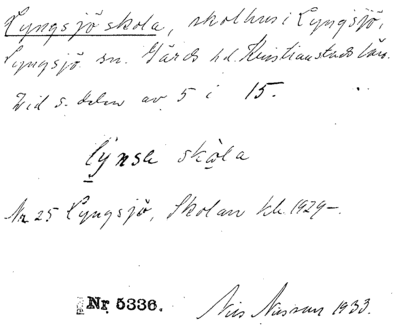 Lyngsjö skola, skolhus i Lyngsjö,
Lyngsjö sn. Gärds hd. Kristianstads län.
Vid s. delen av 5 i 15.
lynse skola
Nr 25 Lyngsjö, Skolan kb. 1929–.
Nr 5336. Nils Nilsson 1933.